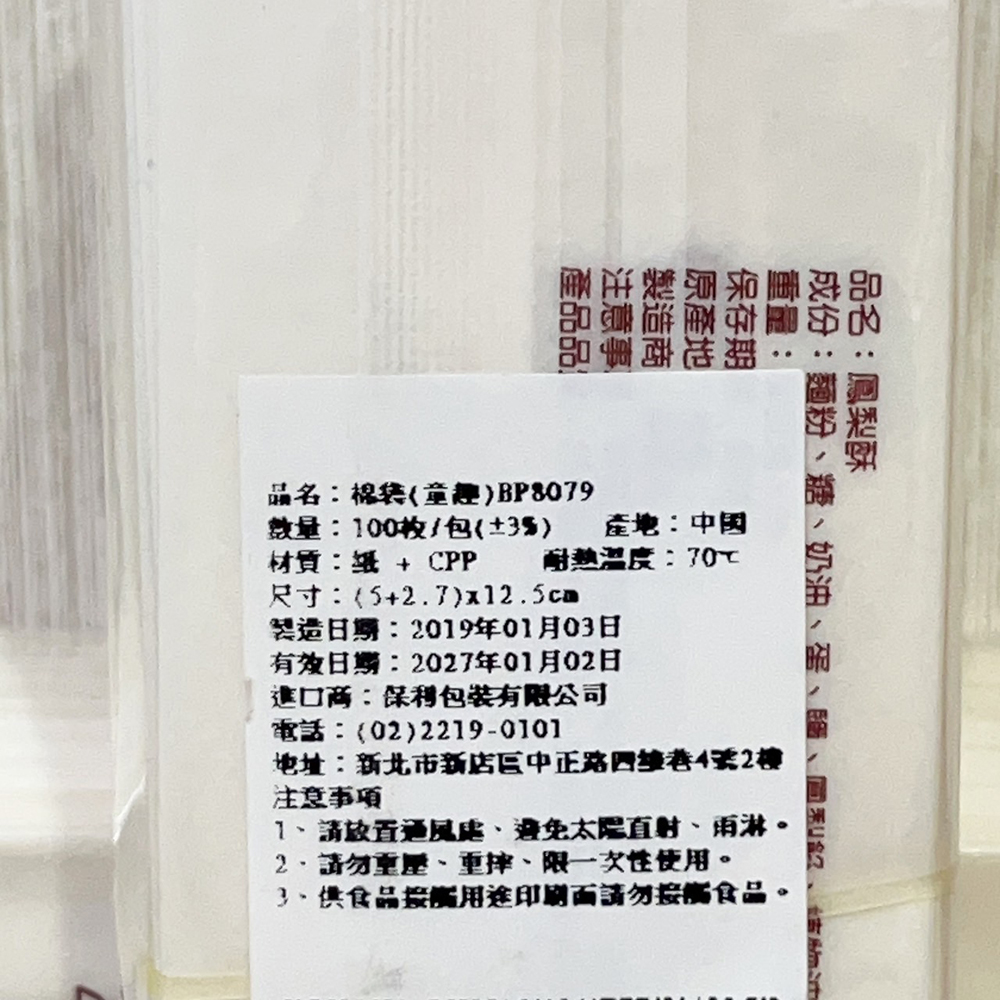 品名：棉袋(童趣)BP8079
數量：100枚/包(±3%) 產地：中國
材質：紙 + CPP 耐熱溫度：70℃
尺寸：(5+2.7)x12.5cm
製造日期：2019年01月03日
有效日期：2027年01月02日
進口商：保利包裝有限公司
電話：(02)2219-0101
地址：新北市新店區中正路四維巷4號2樓
注意事項
1、請放置通風處、避免太陽直射、雨淋。
2、請勿重壓、重摔、限一次性使用。
3、供食品接觸用途印刷面請勿接觸食品。
品名：鳳梨酥
成份：麵粉、糖、奶油、蛋、鹽、鳳梨餡、植物油
重量：
保存期
原產地
製造商
注意事
產品品